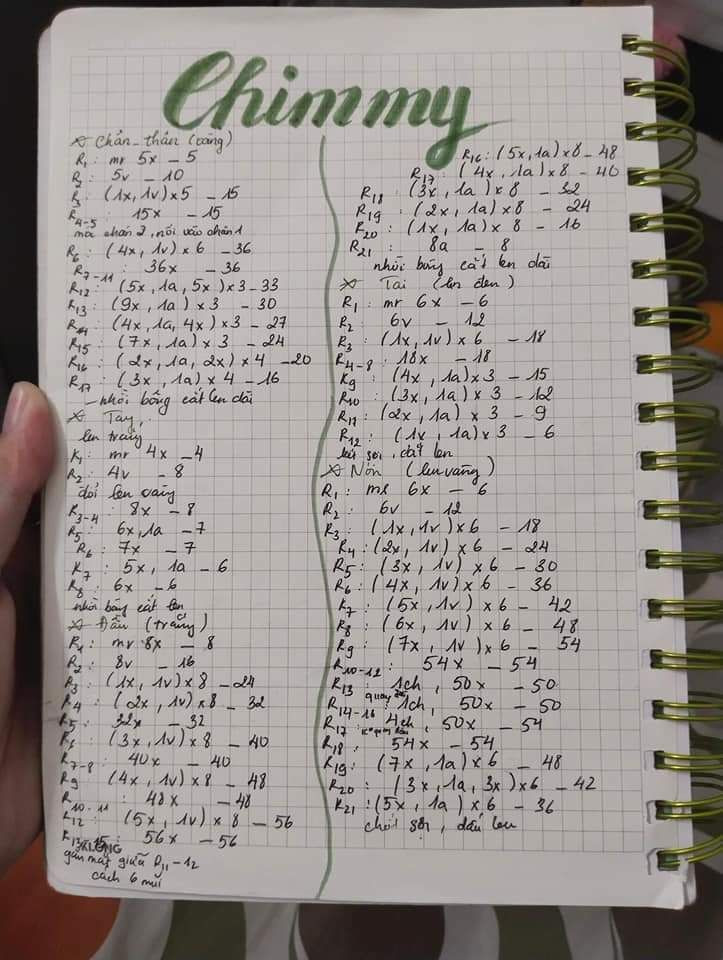 Chimmy
Chân - thân (vàng)
R1: mr 5x - 5
R2: 5v - 10
R3: (1x, 1v) x 5 - 15
R4-5: 15x - 15
móc chân 2, nối vào chân 1
R6: (4x, 1v) x 6 - 36
R7-11: 36x - 36
R12: (5x, 1a, 5x) x 3 - 33
R13: (9x, 1a) x 3 - 30
R14: (4x, 1a, 4x) x 3 - 27
R15: (7x, 1a) x 3 - 24
R16: (2x, 1a, 2x) x 4 - 20
R17: (3x, 1a) x 4 - 16
- nhồi bông cắt len dài
Tay,
len trắng
R1: mr 4x - 4
R2: 4v - 8
đổi len vàng
R3-4: 8x - 8
R5: 6x, 1a - 7
R6: 7x - 7
R7: 5x, 1a - 6
R8: 6x - 6
nhồi bông cắt len
Đầu (trắng)
R1: mr 8x - 8
R2: 8v - 16
R3: (1x, 1v) x 8 - 24
R4: (2x, 1v) x 8 - 32
R5: 32x - 32
R6: (3x, 1v) x 8 - 40
R7-8: 40x - 40
R9: (4x, 1v) x 8 - 48
R10-11: 48x - 48
R12: (5x, 1v) x 8 - 56
R13-15: 56x - 56
KLONG
gắn mắt giữa R11-12
cách 6 mũi
R16: (5x, 1a) x 8 - 48
R17: (4x, 1a) x 8 - 40
R18: (3x, 1a) x 8 - 32
R19: (2x, 1a) x 8 - 24
R20: (1x, 1a) x 8 - 16
R21: 8a - 8
nhồi bông cắt len dài
Tai (len đen)
R1: mr 6x - 6
R2: 6v - 12
R3: (1x, 1v) x 6 - 18
R4-8: 18x - 18
R9: (4x, 1a) x 3 - 15
R10: (3x, 1a) x 3 - 12
R11: (2x, 1a) x 3 - 9
R12: (1x, 1a) x 3 - 6
len
Nón (len vàng)
R1: mr 6x - 6
R2: 6v - 12
R3: (1x, 1v) x 6 - 18
R4: (2x, 1v) x 6 - 24
R5: (3x, 1v) x 6 - 30
R6: (4x, 1v) x 6 - 36
R7: (5x, 1v) x 6 - 42
R8: (6x, 1v) x 6 - 48
R9: (7x, 1v) x 6 - 54
R10-12: 54x - 54
R13: 1ch, 50x - 50
R14-16: quay 1ch, 50x - 50
R17: 4ch, 50x - 54
R18: 54x - 54
R19: (7x, 1a) x 6 - 48
R20: (3x, 1a, 3x) x 6 - 42
R21: (5x, 1a) x 6 - 36
sợi, dấu len